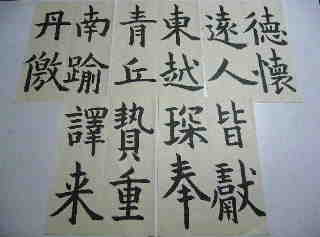 德懷
遠人
東越
青丘
南踰
丹徼
皆獻
琛奉
贄重
譯来